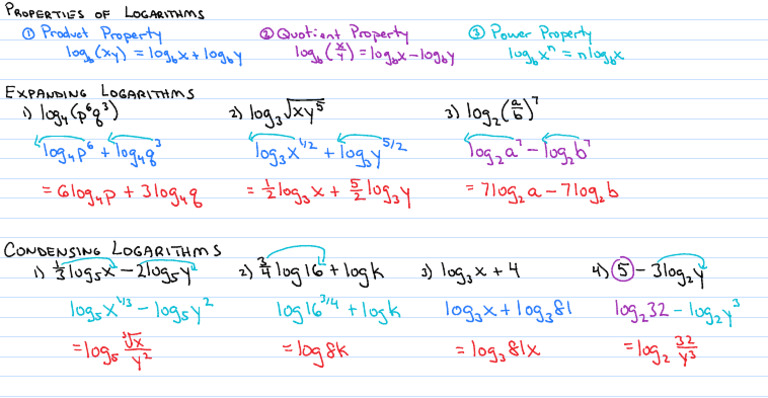 PROPERTIES OF LOGARITHMS
① Product Property ② Quotient Property ③ Power Property
log_b(xy) = log_b x + log_b y log_b(x/y) = log_b x - log_b y log_b x^n = n log_b x
EXPANDING LOGARITHMS
1) log_4(p^6 q^3) 2) log_3 √(xy^5) 3) log_2(a/b)^7
log_4 p^6 + log_4 q^3 log_3 x^(1/2) + log_3 y^(5/2) log_2 a^7 - log_2 b^7
= 6 log_4 p + 3 log_4 q = 1/2 log_3 x + 5/2 log_3 y = 7 log_2 a - 7 log_2 b
CONDENSING LOGARITHMS
1) 1/3 log_5 x - 2 log_5 y 2) 3/4 log 16 + log k 3) log_3 x + 4 4) 5 - 3 log_2 y
log_5 x^(1/3) - log_5 y^2 log 16^(3/4) + log k log_3 x + log_3 81 log_2 32 - log_2 y^3
= log_5 ∛x/y^2 = log 8k = log_3 81x = log_2 32/y^3